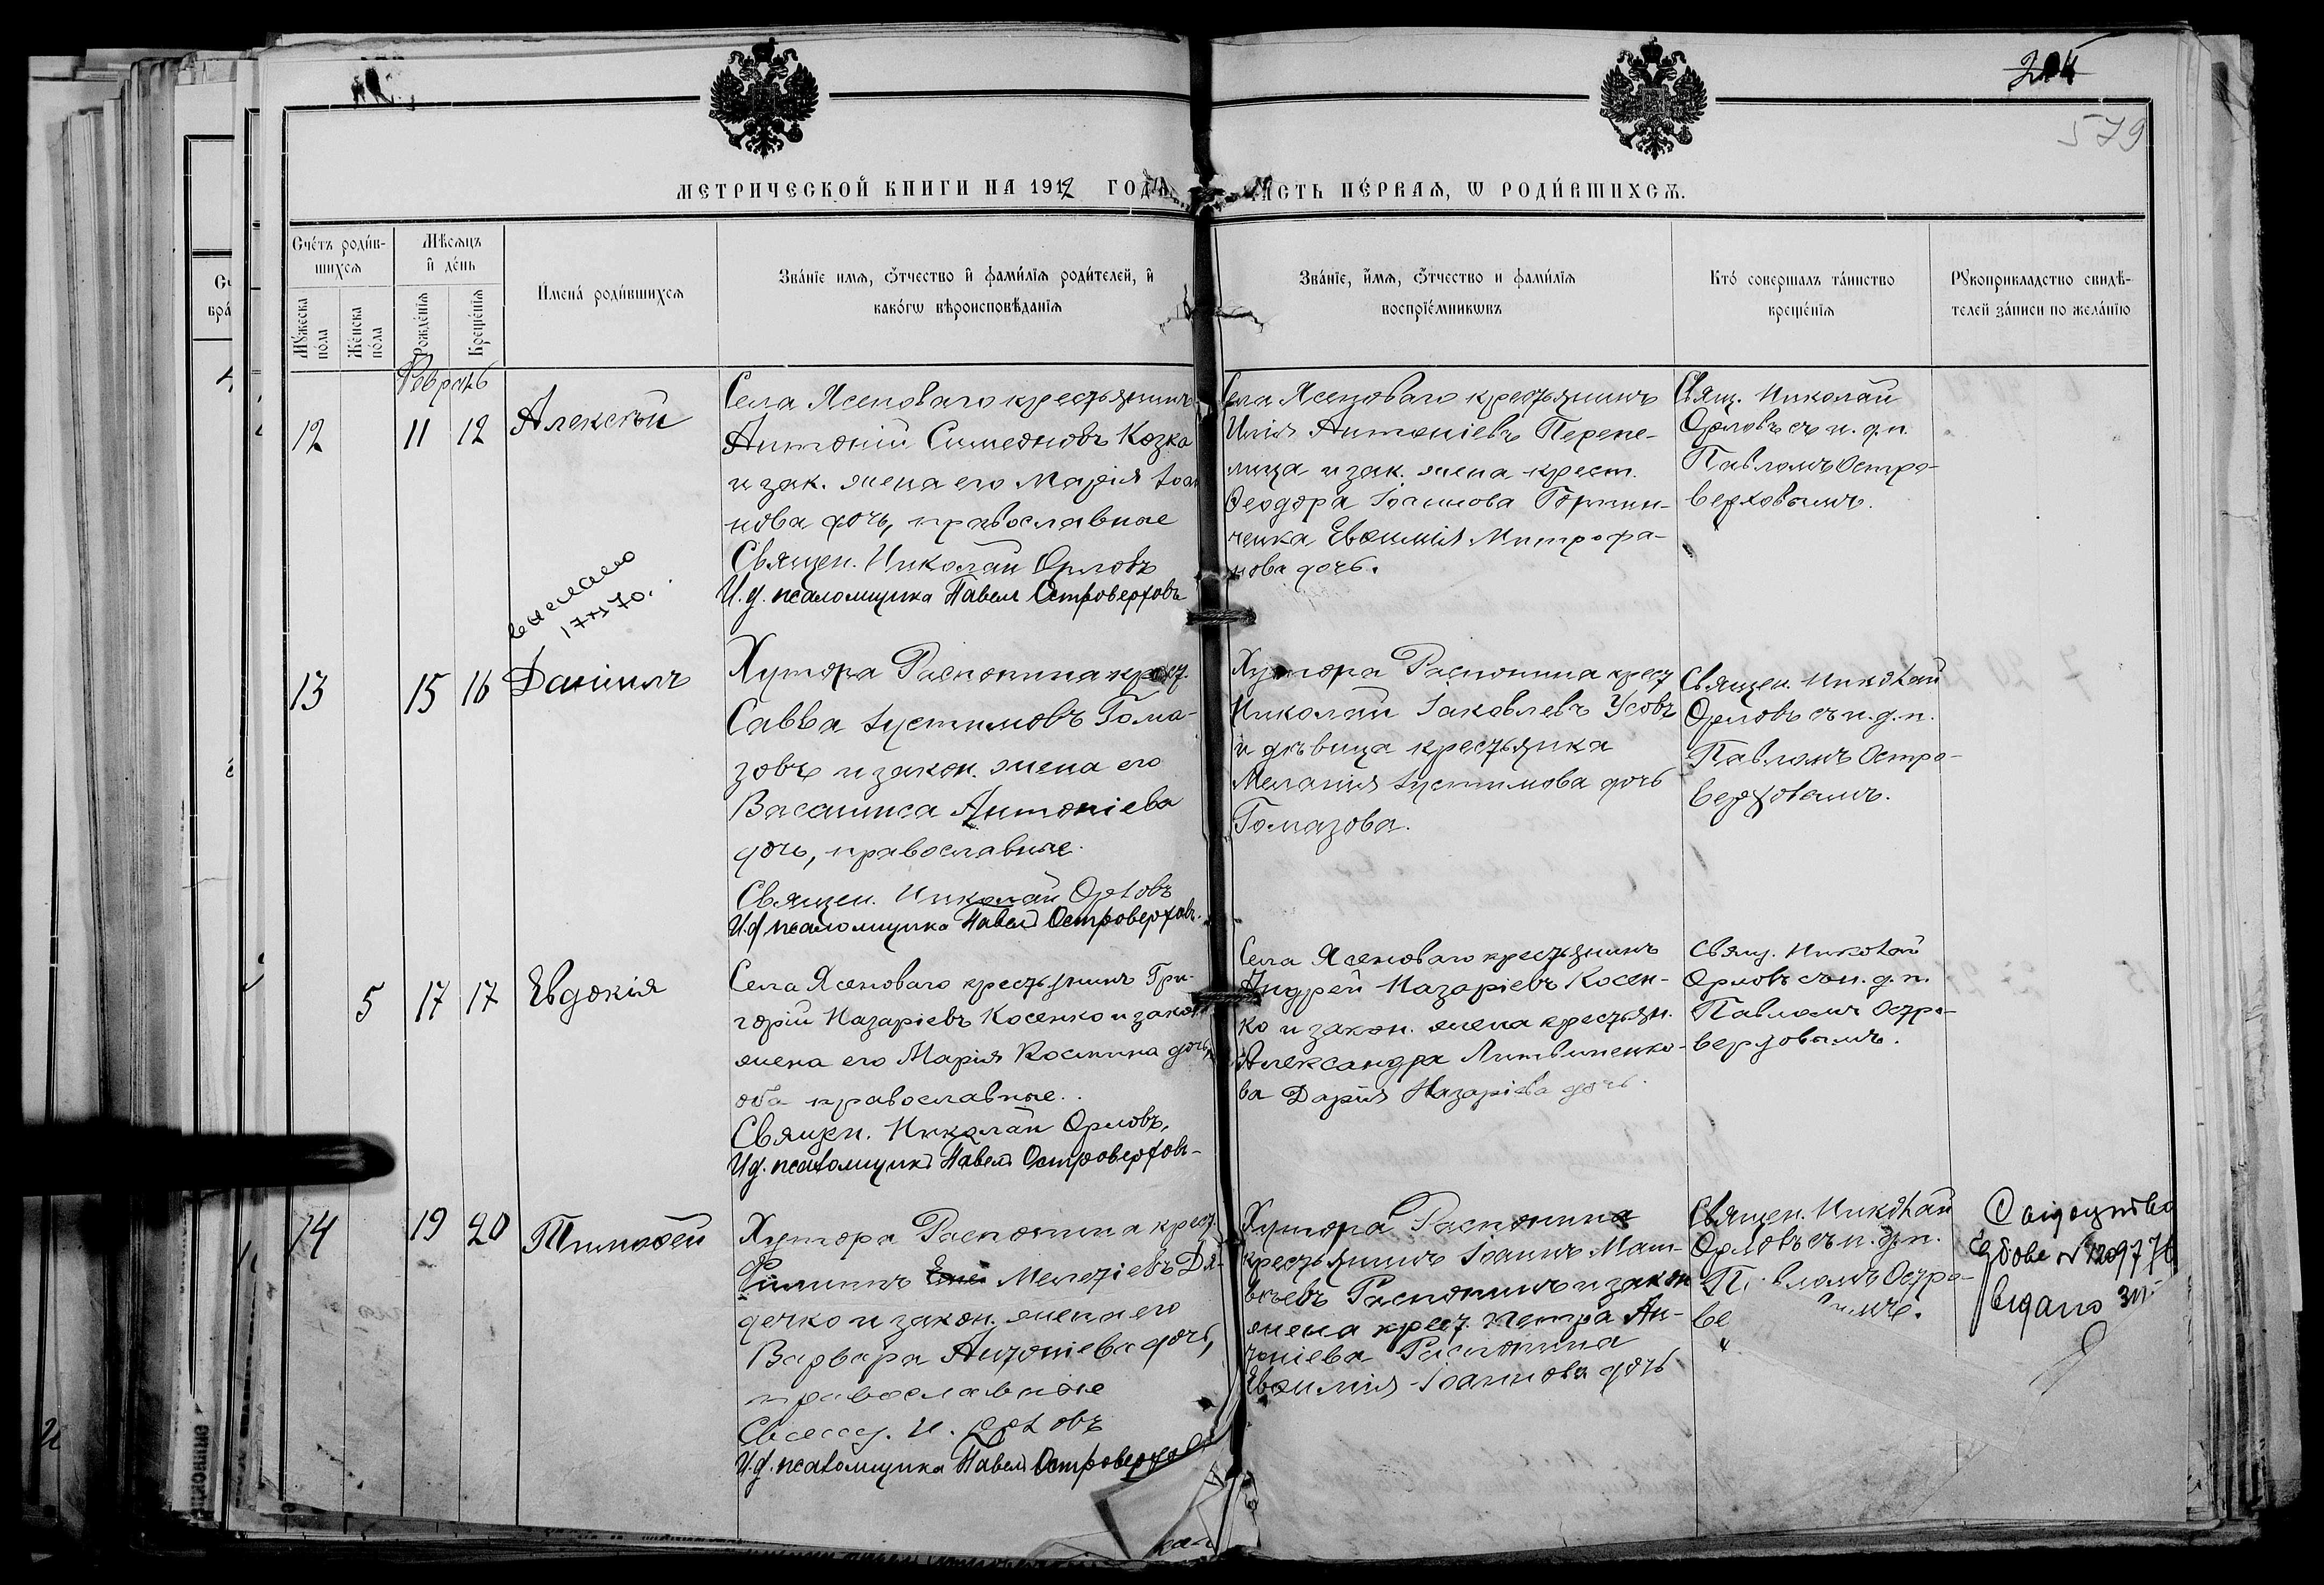 204
579
МЕТРИЧЕСКОЙ КНИГИ НА 1912 ГОДЪ, ЧАСТЬ ПЕ́РВАЯ, Ѡ РОДИ́ВШИХСЯ.
Сче́тъ роди́в-
шихся
Мѣ́сяцъ
и҆ де́нь
Му́жеска
по́ла
Же́нска
по́ла
Рожде́нія
Креще́нія
И҆мена̀ роди́вшихся
Зва́нїе имя, ѻ҆́тчество и҆ фами́лїя роди́телей, и҆
како́гѡ вѣроисповѣ́данїя
Зва́нїе, и҆́мя, ѻ҆́тчество и фами́лїя
воспрїе́мникѡвъ
Кто̀ совершалъ та́инство
креще́нїя
Рꙋкоприкладство свидѣ́-
телей за́писи по жела́нїю
Февраль
12
11
12
Алексѣй
Села Ясеноваго крестьянинъ
Антоній Симеоновъ Козка
и зак. жена его Марія Іоан
нова дочь, православные
Священ. Николай Орловъ
И.д. псаломщика Павелъ Островерховъ
Села Ясеноваго крестьянинъ
Илія Антоніевъ Перепе-
лица и зак. жена крест.
Ѳеодора Іоаннова
ченка Евѳимія Митрофа-
нова дочь.
Свящ. Николай
Орловъ съ и. д. п.
Павломъ Остро-
верховымъ.
13
15
16
Даніилъ
Хутора Распопина крест.
Савва Іустиновъ Гома-
зовъ и закон. жена его
Васаииса Антоніева
дочь, православные.
Священ. Николай Орловъ
И.д псаломщика Павелъ Островерховъ.
Хутора Распопина крест
Николай Іаковлевъ Усовъ
и дѣвица крестьянка
Меланія Іустинова дочь
Гомазова.
Священ. Николай
Орловъ съ и. д. п.
Павломъ Остро-
верховымъ.
5
17
17
Евдокія
Села Ясеноваго крестьянинъ Гри-
горій Назаріевъ Косенко и закон
жена его Марія Космина дочь,
оба православные.
Священ. Николай Орловъ,
И.д. псаломщика Павелъ Островерховъ
Села Ясеноваго крестьянинъ
Андрей Назаріевъ Косен-
ко и закон. жена крестьян.
Александра Литвиненко-
ва Дарія Назаріева дочь.
Свящ. Николай
Орловъ съ и. д. п.
Павломъ Остро-
верховымъ.
14
19
20
Тимоѳей
Хутора Распопина крест.
Филиппъ Мелетіевъ Дя-
дечко и закон. жена его
Варвара Антоніева дочь,
православные
Свящ. Н. Орловъ
И.д. псаломщика Павелъ Островерховъ
Хутора Распопина
крестьянинъ Іоаннъ Мат-
вѣевъ Распопинъ и закон
жена крест. Петра Ан-
тоніева Распопина
Евѳимія Іоаннова дочь
Священ. Николай
Орловъ съ и. д. п.
Павломъ Остро-
ве